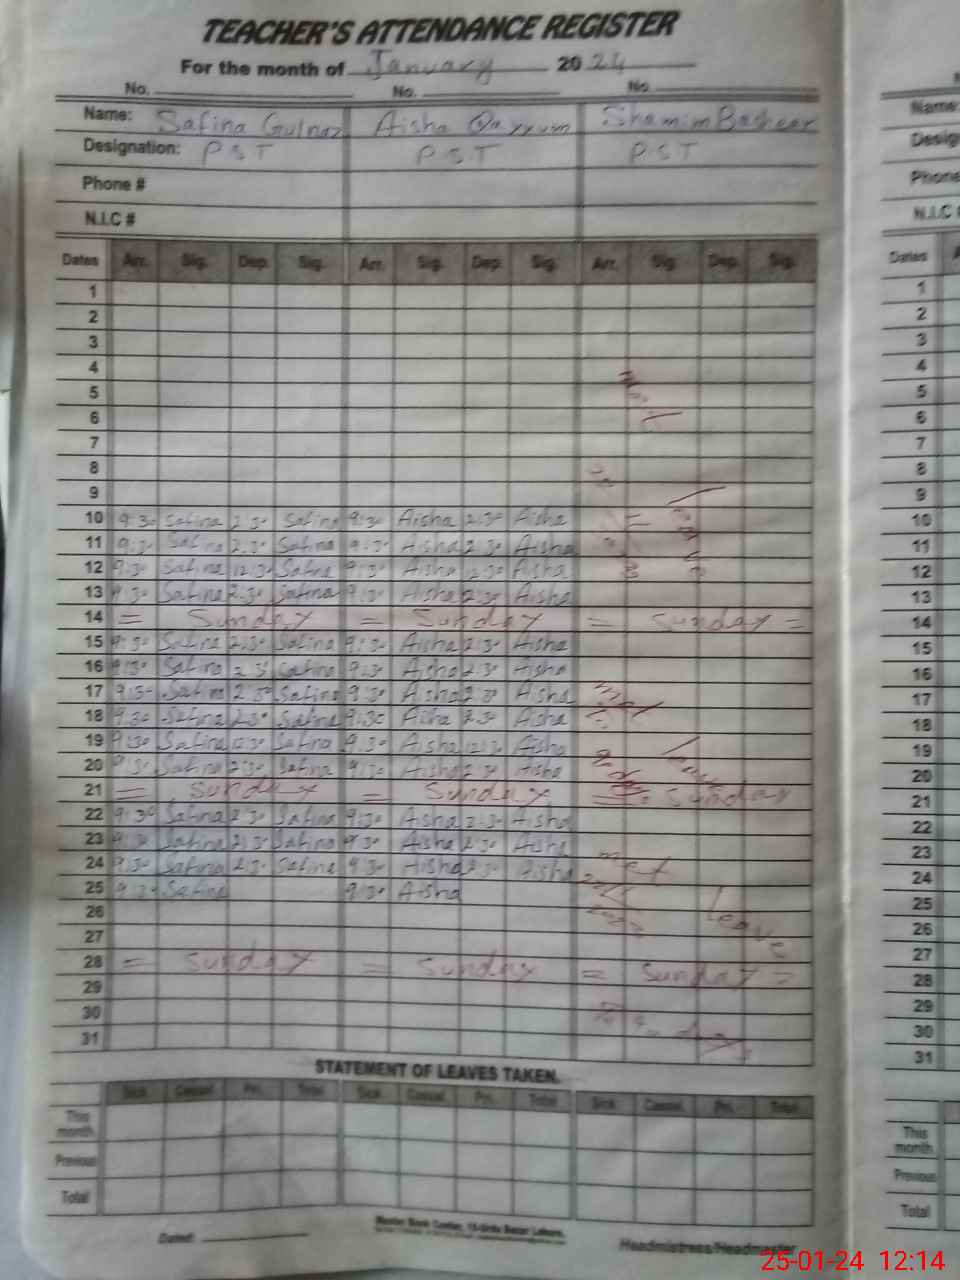 TEACHER'S ATTENDANCE REGISTER
For the month of January 2024
No. No. No.
Name: Safina Gulnaz Aisha Qayyum Shamim Basheer Name:
Designation: PST PST PST Desig
Phone # Phone
N.I.C # N.I.C
Dates Arr. Sig. Dep. Sig. Arr. Sig. Dep. Sig. Arr. Sig. Dep. Sig. Dates
1 1
2 2
3 3
4 4
5 5
6 6
7 7
8 8
9 9
10 9:30 Safina 2:30 Safina 9:30 Aisha 2:30 Aisha 10
11 9:30 Safina 2:30 Safina 9:30 Aisha 2:30 Aisha 11
12 9:30 Safina 12:30 Safina 9:30 Aisha 12:30 Aisha 12
13 9:30 Safina 2:30 Safina 9:30 Aisha 2:30 Aisha 13
14 = Sunday = Sunday = Sunday = 14
15 9:30 Safina 2:30 Safina 9:30 Aisha 2:30 Aisha 15
16 9:30 Safina 2:30 Safina 9:30 Aisha 2:30 Aisha 16
17 9:30 Safina 2:30 Safina 9:30 Aisha 2:30 Aisha 17
18 9:30 Safina 2:30 Safina 9:30 Aisha 2:30 Aisha 18
19 9:30 Safina 12:30 Safina 9:30 Aisha 12:30 Aisha leave 19
20 9:30 Safina 2:30 Safina 9:30 Aisha 2:30 Aisha 20
21 = Sunday = Sunday = Sunday 21
22 9:30 Safina 2:30 Safina 9:30 Aisha 2:30 Aisha 22
23 9:30 Safina 2:30 Safina 9:30 Aisha 2:30 Aisha 23
24 9:30 Safina 2:30 Safina 9:30 Aisha 2:30 Aisha 24
25 9:30 Safina 9:30 Aisha Leave 25
26 26
27 27
28 = Sunday = Sunday = Sunday = 28
29 29
30 30
31 31
STATEMENT OF LEAVES TAKEN.
Sick Casual Pri. Total Sick Casual Pri. Total Sick Casual Pri. Total
This month This month
Previous Previous
Total Total
Dated: Master Book Center, 15-Urdu Bazar Lahore.
Headmistress/Headmaster
25-01-24 12:14